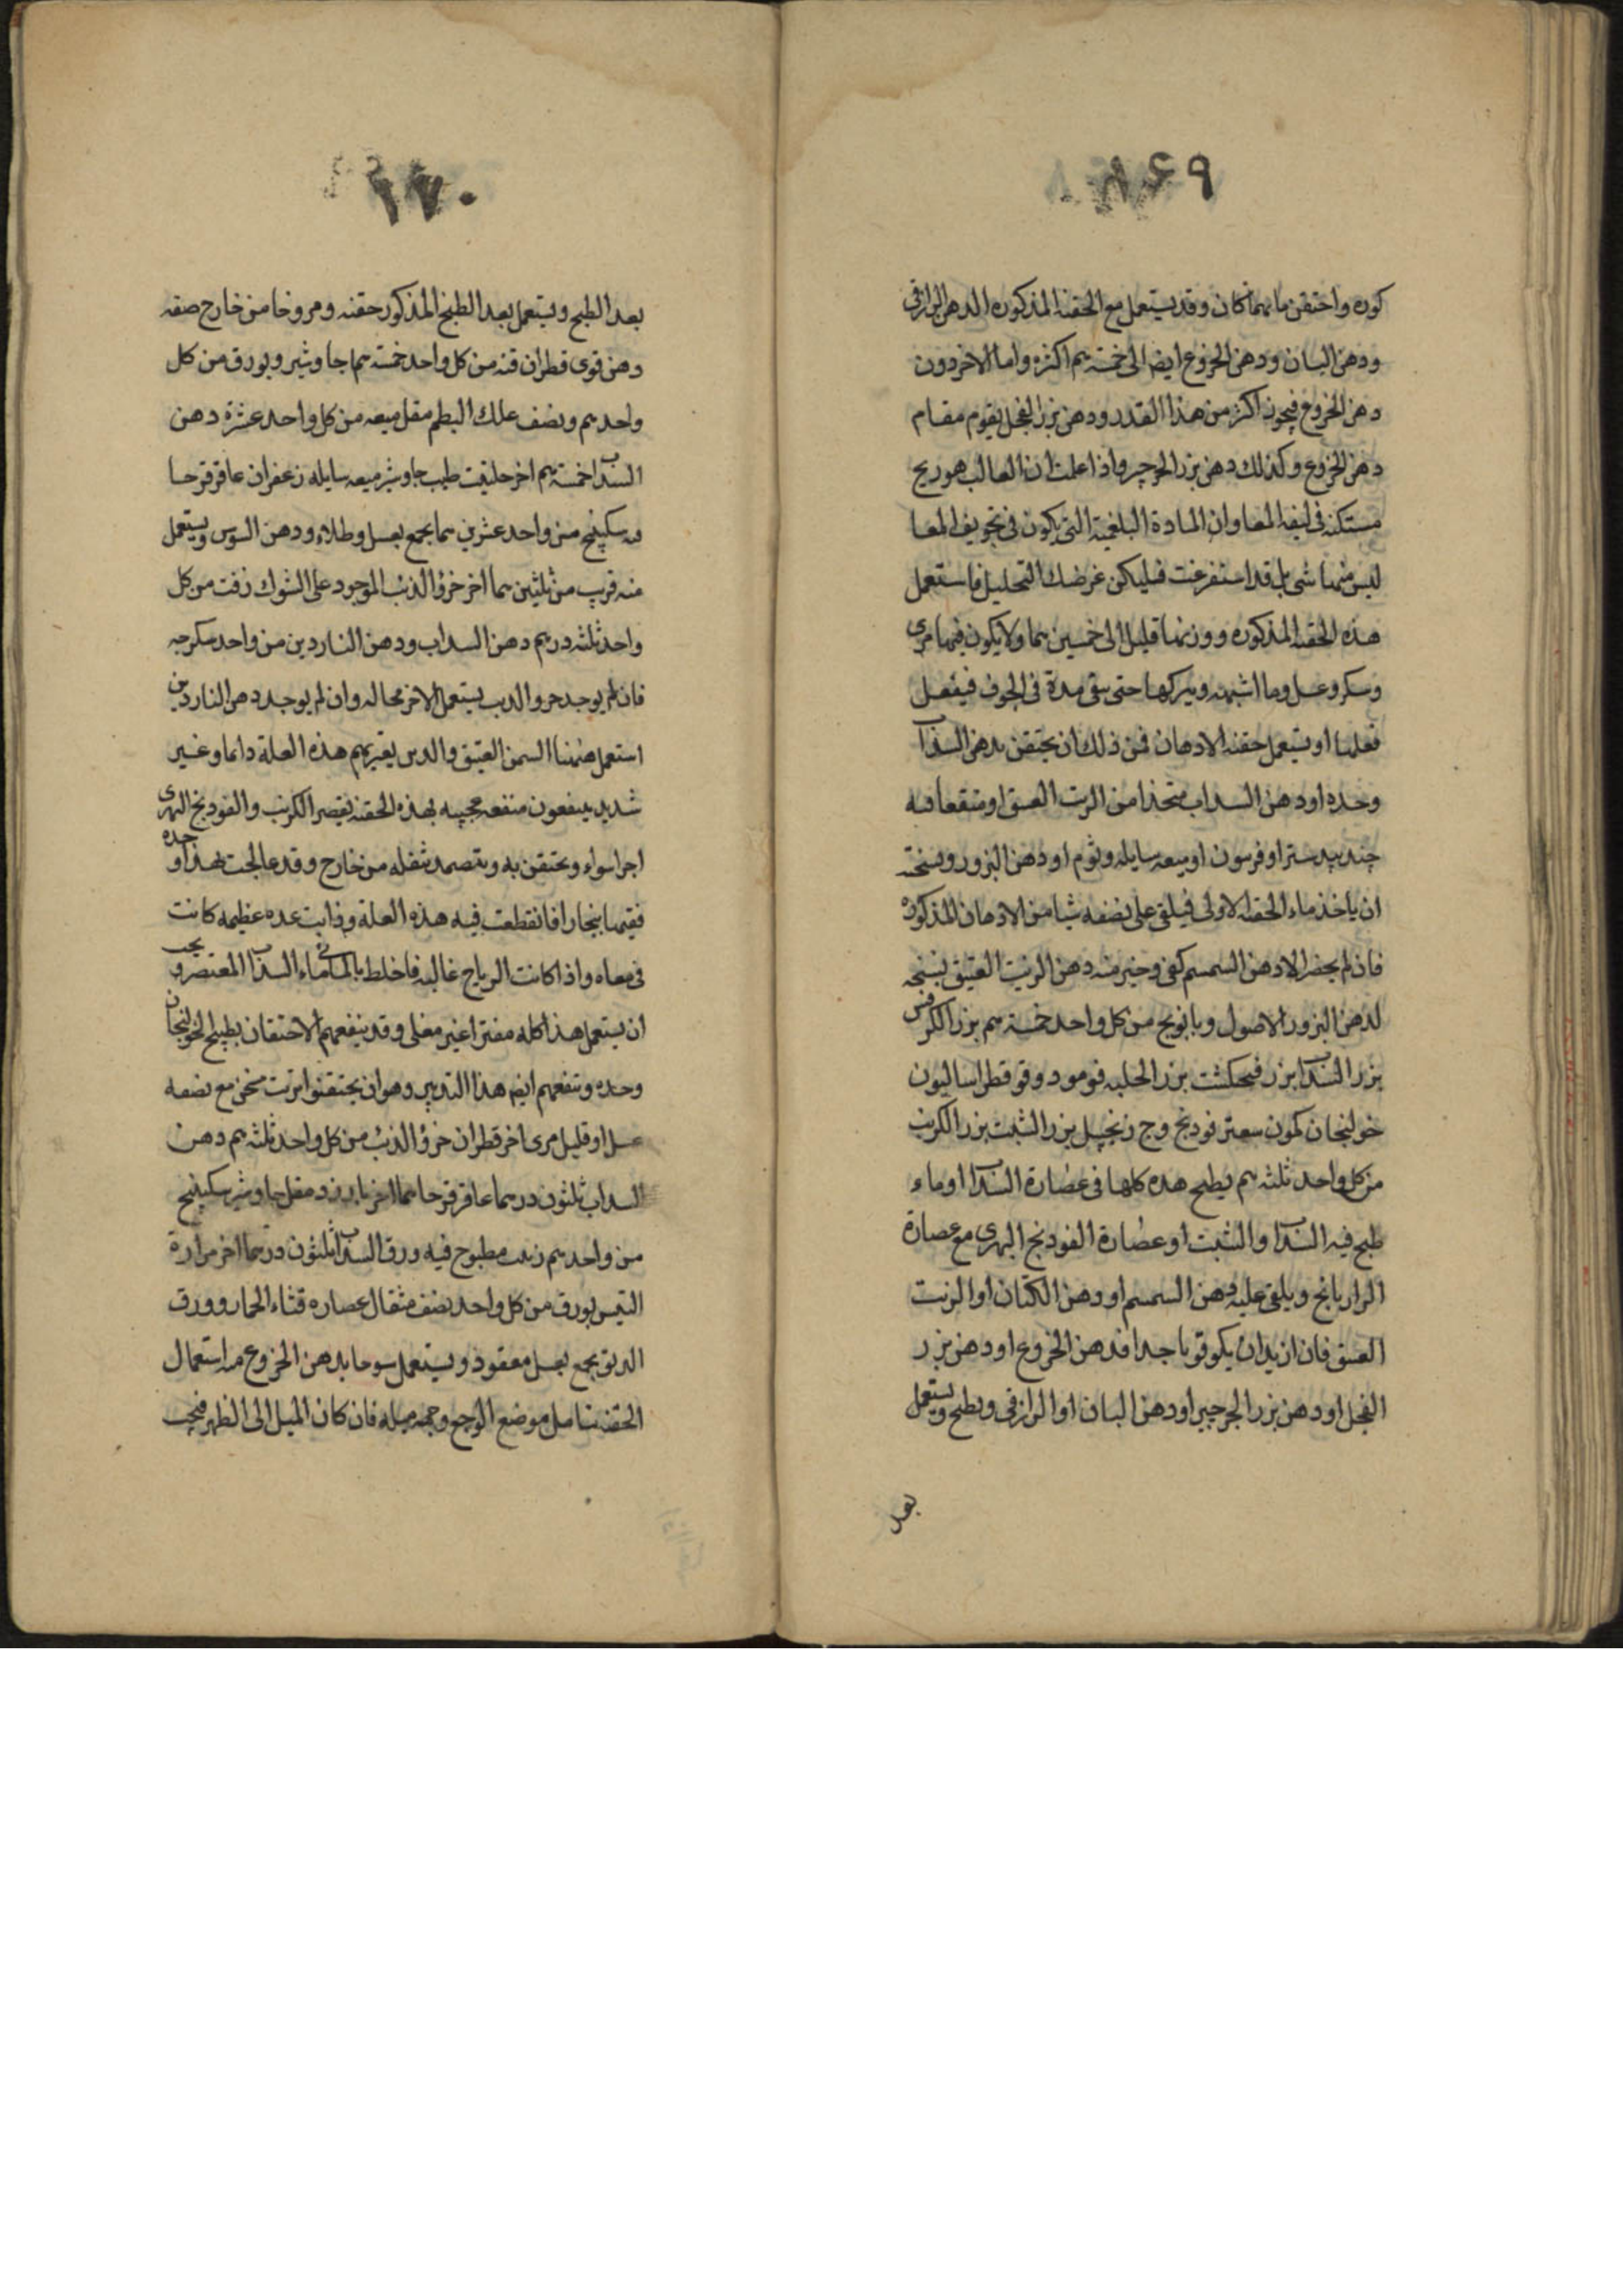 ۸۶۹
كوره واحتقن مابهما كان وقد يستعمل مع الحقنة المذكوره الدهن الرازقى
ودهن البان ودهن الخروع ايضا الى خمسة سم اكثره واما الاخر دون
دهن الخروع فيجوز اكثر من هذا القدر ودهن بزر الفجل يقوم مقام
دهن الخروع وكذلك دهن بزر الجرجير واذا علمت ان الغالب هو ريح
مستكنة فى ليفة المعا وان المادة البلغمية التى يكون فى تجويف المعا
ليس منها شى بل قد استفرغت فليكن غرضك التحليل فاستعمل
هذه الحقنه المذكوره ووزنها قليل الى خمسين سما ولا يكون فيها مرى
وسكر وعسل وما اشبهه ويتركها حتى يبقى مدة فى الجوف فيفعل
فعلها او يستعمل حقنه الادهان فمن ذلك ان يحتقن بدهن السداب
وحده او دهن السداب متخذا من الزيت العتيق او منقعا فيه
جند بيدستر او فربيون او ميعه سايله وثوم او دهن البزور ونسخته
ان ياخذ ماء الحقنه الاولى فيلقى على نصفه شيا من الادهان المذكوره
فان لم يحضر الا دهن السمسم كفى وخير منه دهن الزيت العتيق نسخه
لدهن البزور الاصول وبابونج من كل واحد خمسة سم بزر الكرفس
بزر السداب بزر فنجكشت بزر الحلبه فو مو دوقو قطراساليون
خولنجان كمون سعتر فودنج وج زنجبيل بزر الشبت بزر الكرنب
من كل واحد ثلثه سم يطبخ هذه كلها فى عصارة السداب او ماء
طبخ فيه السداب والشبت او عصارة الفودنج النهرى مع عصارة
الرازيانج ويلقى عليه دهن السمسم او دهن الكتان او الزيت
العتيق فان اريد ان يكو قويا جدا فدهن الخروع او دهن بزر
الفجل او دهن بزر الجرجير او دهن البان او الرازقى ويطبخ ويستعمل
بعد
۱۷۰
بعد الطبخ ويستعمل بعد الطبخ المذكور حقنه ومروخا من خارج صفه
دهن قوى قطران قنه من كل واحد خمسة سما جاوشير وبورق من كل
واحد سم ونصف علك البطم مقل ميعه من كل واحد عشرة دهن
السداب خمسة سم اخر حلتيت طيب جاوشير ميعه سايله زعفران عاقرقرحا
سكبينج من واحد عشرين سما يجمع بعسل وطلاء ودهن السوس ويستعمل
منه قريب من ثلثين سما اخر خرؤ الذئب الموجود على الشوك زفت من كل
واحد ثلثه درهم دهن السداب ودهن الناردين من واحد سكرجه
فان لم يوجد خرو الديب يستعمل الاخر بحاله وان لم يوجد دهن الناردين
استعمل ههنا السمن العتيق والدين يعتريهم هذه العلة دايما وغير
شديد ينفعون منفعه عجيبه بهذه الحقنه يقصر الكرنب والفودنج النهرى
اجرا سواء ويحتقن به ويتضمد بثفله من خارج وقد عالجت بهذا وحده
فقيها ببخارا فانقطعت فيه هذه العلة وذابت غده عظيمه كانت
فى معاه واذا كانت الرياح غالبه فاخلط بالمياه ماء السداب المعتصر ويجب
ان يستعمل هذا كله مفترا غير مغلى وقد ينفعهم الاحتقان بطبيخ الخولنجان
وحده وينفعهم ايضا هذا التدبير وهو ان يحتقنوا بزيت سخن مع نصفه
عسل او قليل مرى اخر قطران خرؤ الذئب من كل واحد ثلثه سم دهن
السداب ثلثون درسما عاقرقرحا سما اخر بارزد مقل جاوشير سكبينج
من واحد سم زيت مطبوخ فيه ورق السداب ثلثون درسما اخر مرارة
التيس بورق من كل واحد نصف مثقال عصاره قثاء الحمار وورق
يجمع بعسل معقود ويستعمل بدهن الخروع استعمال
الحقنه تامل موضع الوجع وجهه ميله فان كان الميل الى الظهر فيجب